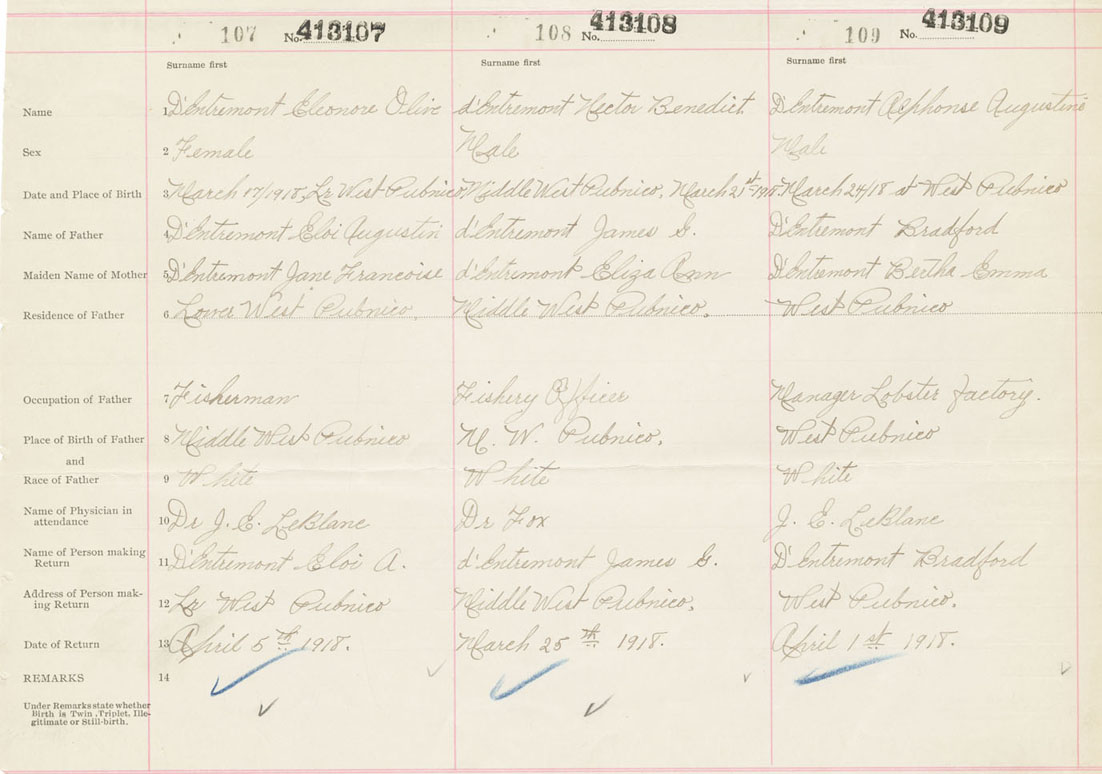 107 No. 413107 108 No. 413108 109 No. 413109
Surname first Surname first Surname first
Name 1 D'Entremont Eleonore Olive d'Entremont Hector Benedict. D'Entremont Alphonse Augustine
Sex 2 Female Male Male
Date and Place of Birth 3 March 17/1918, Lr West Pubnico Middle West Pubnico, March 21st 1918. March 24/18 at West Pubnico
Name of Father 4 D'Entremont Eloi Augustin d'Entremont James G. D'Entremont Bradford
Maiden Name of Mother 5 D'Entremont Jane Francoise d'Entremont Eliza Ann D'Entremont Bertha Emma
Residence of Father 6 Lower West Pubnico. Middle West Pubnico. West Pubnico
Occupation of Father 7 Fisherman Fishery Officer Manager Lobster factory.
Place of Birth of Father 8 Middle West Pubnico M. W. Pubnico. West Pubnico
and
Race of Father 9 White White White
Name of Physician in
attendance 10 Dr J. E. LeBlanc Dr Fox J. E. LeBlanc
Name of Person making
Return 11 D'Entremont Eloi A. d'Entremont James G. D'Entremont Bradford
Address of Person mak-
ing Return 12 Lr West Pubnico Middle West Pubnico. West Pubnico.
Date of Return 13 April 5th 1918. March 25th 1918. April 1st 1918.
REMARKS 14
Under Remarks state whether
Birth is Twin, Triplet, Ille-
gitimate or Still-birth.